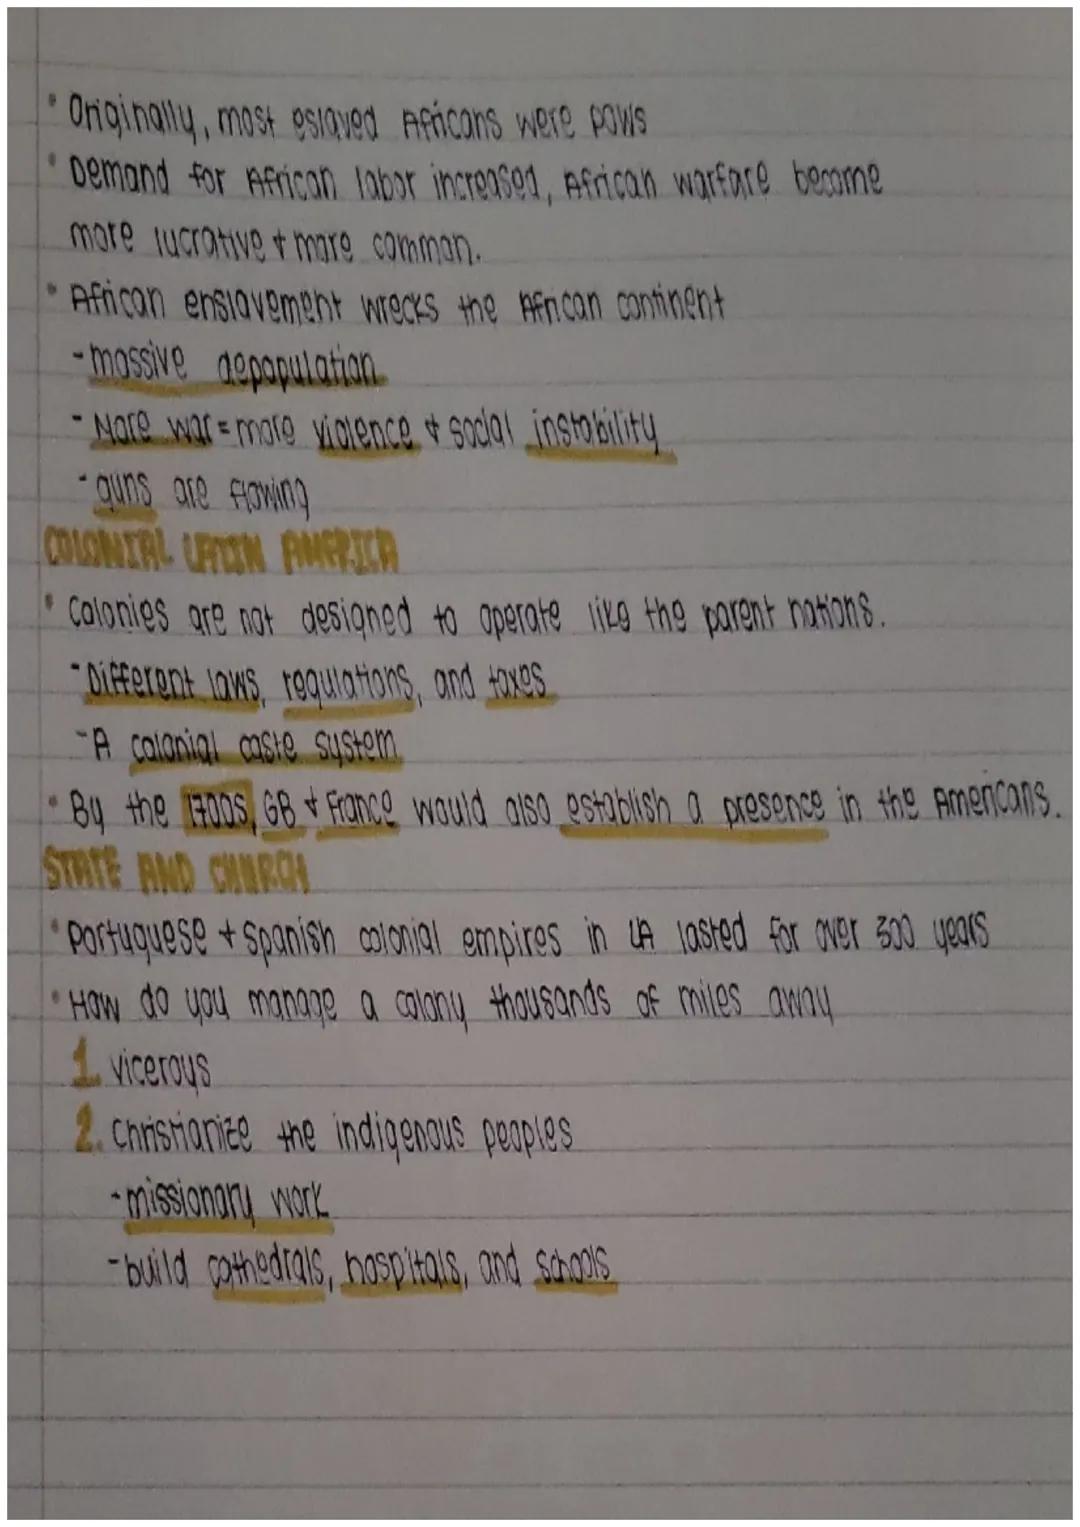 • Originally, most eslaved Africans were POWs
• Demand for African labor increased, African warfare become
more lucrative + more common.
• African enslavement wrecks the African continent
- massive depopulation
- More war = more violence + social instability
- guns are flowing
COLONIAL LATIN AMERICA
• Colonies are not designed to operate like the parent nations.
- Different laws, regulations, and taxes
- A colonial caste system
• By the 1700s, GB + France would also establish a presence in the Americans.
STATE AND CHURCH
• Portuguese + Spanish colonial empires in LA lasted for over 300 years
• How do you manage a colony thousands of miles away
1. viceroys
2. Christianize the indigenous peoples
- missionary work
- build cathedrals, hospitals, and schools